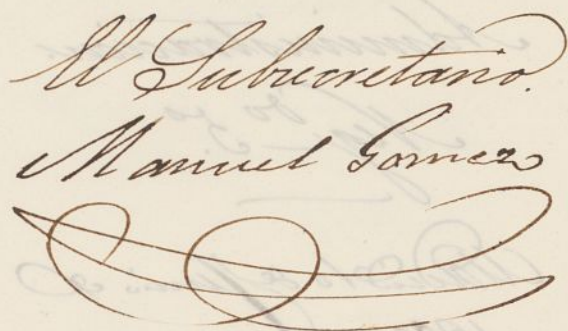 El Subsecretario.
Manuel Gomez